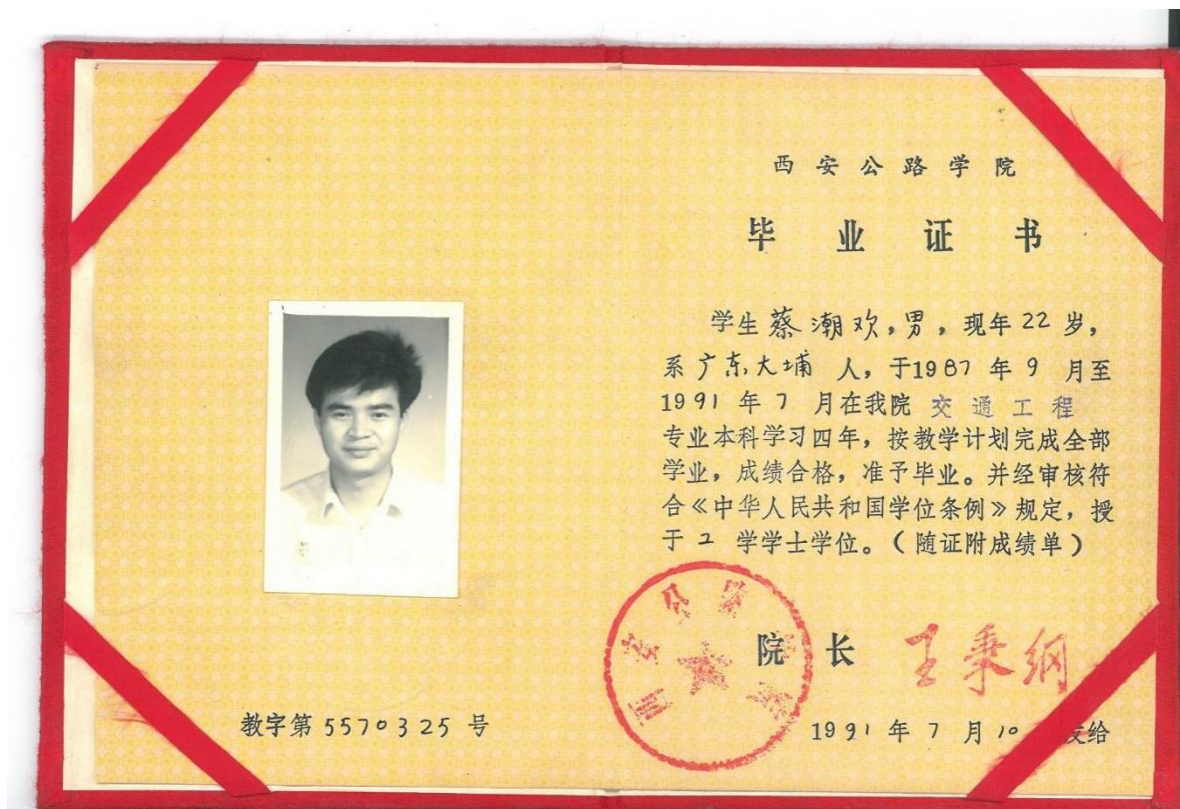 西安公路学院
毕业证书
学生蔡潮欢，男，现年22岁，
系广东大埔人，于1987年9月至
1991年7月在我院交通工程
专业本科学习四年，按教学计划完成全部
学业，成绩合格，准予毕业。并经审核符
合《中华人民共和国学位条例》规定，授
于工学学士学位。（随证附成绩单）
院长 王秉纲
西安公路学院
教字第5570325号
1991年7月10 发给